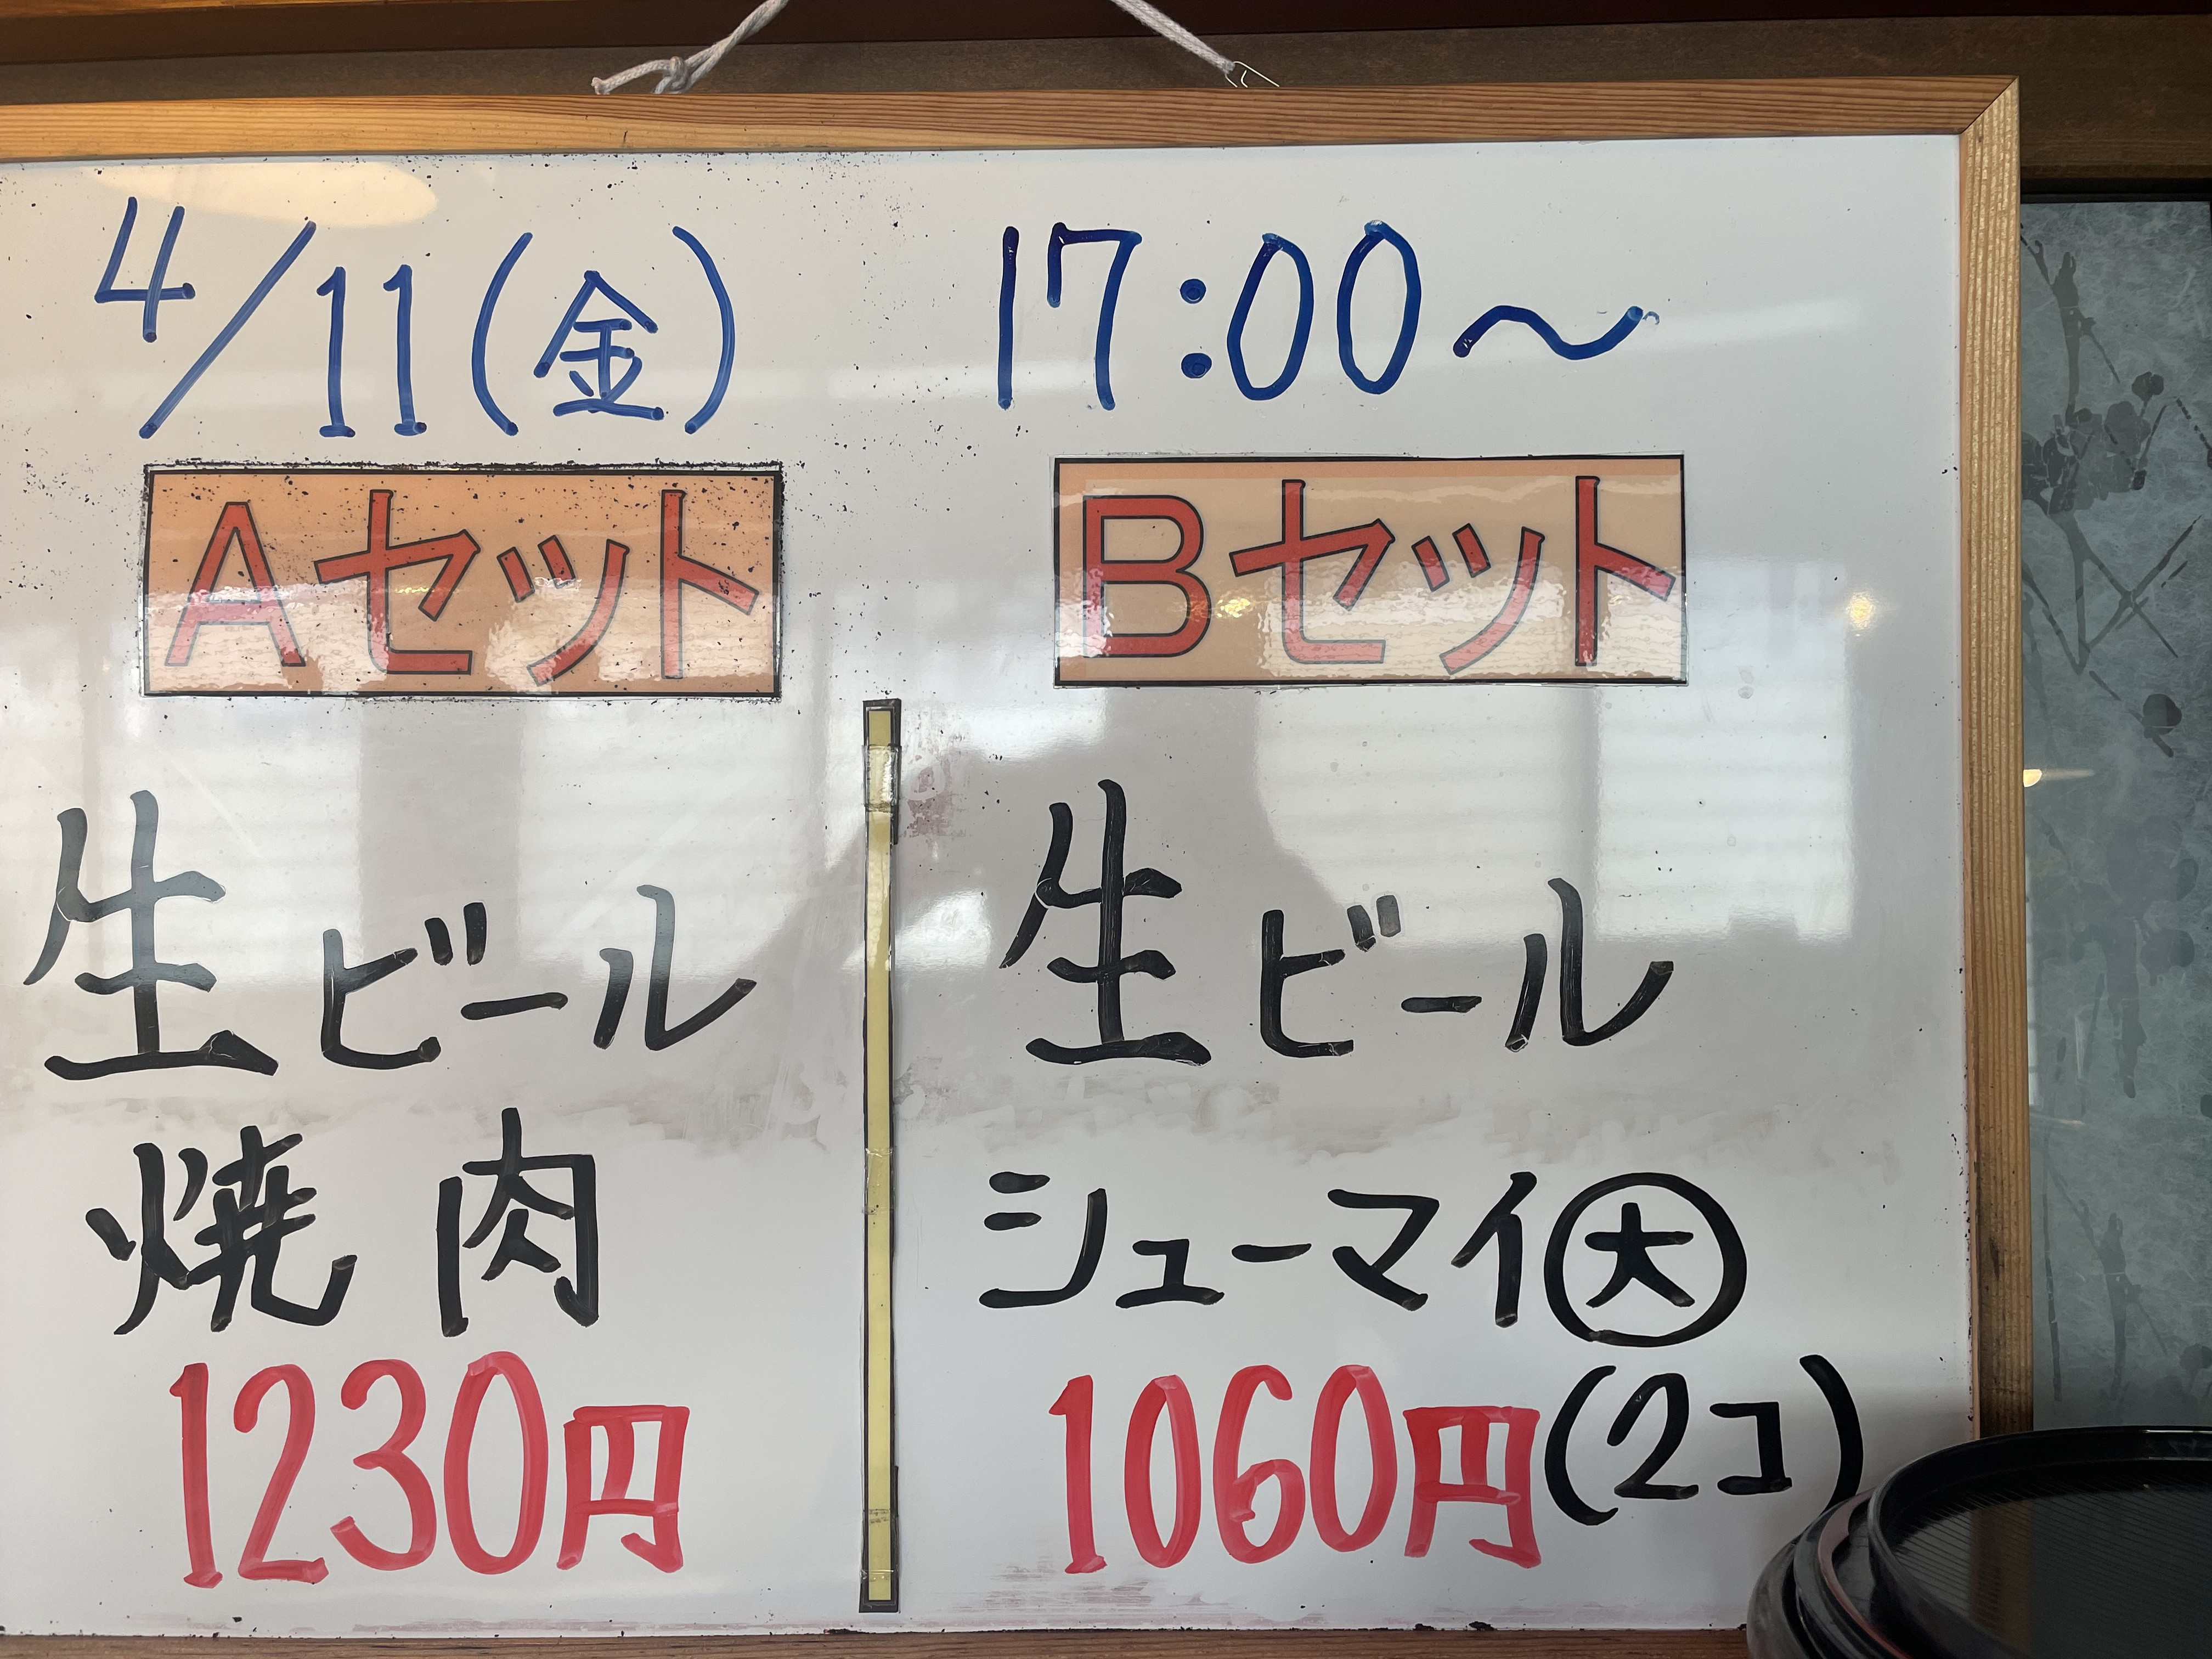 4/11(金) 17:00〜
Aセット
生ビール
焼肉
1230円
Bセット
生ビール
シューマイ㊛
1060円(2コ)